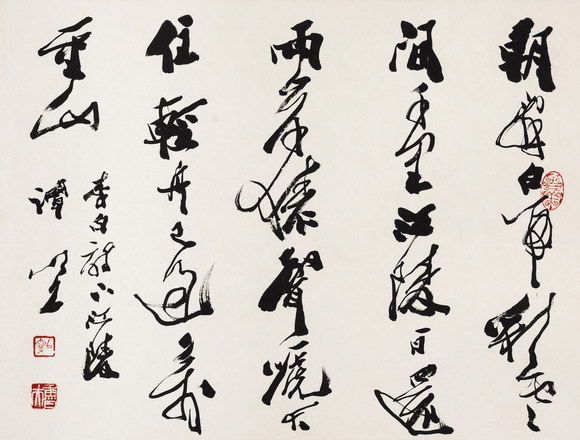 朝辭白帝彩雲
間千里江陵一日還
兩岸猿聲啼不
住輕舟已過萬
重山
李白詩下江陵